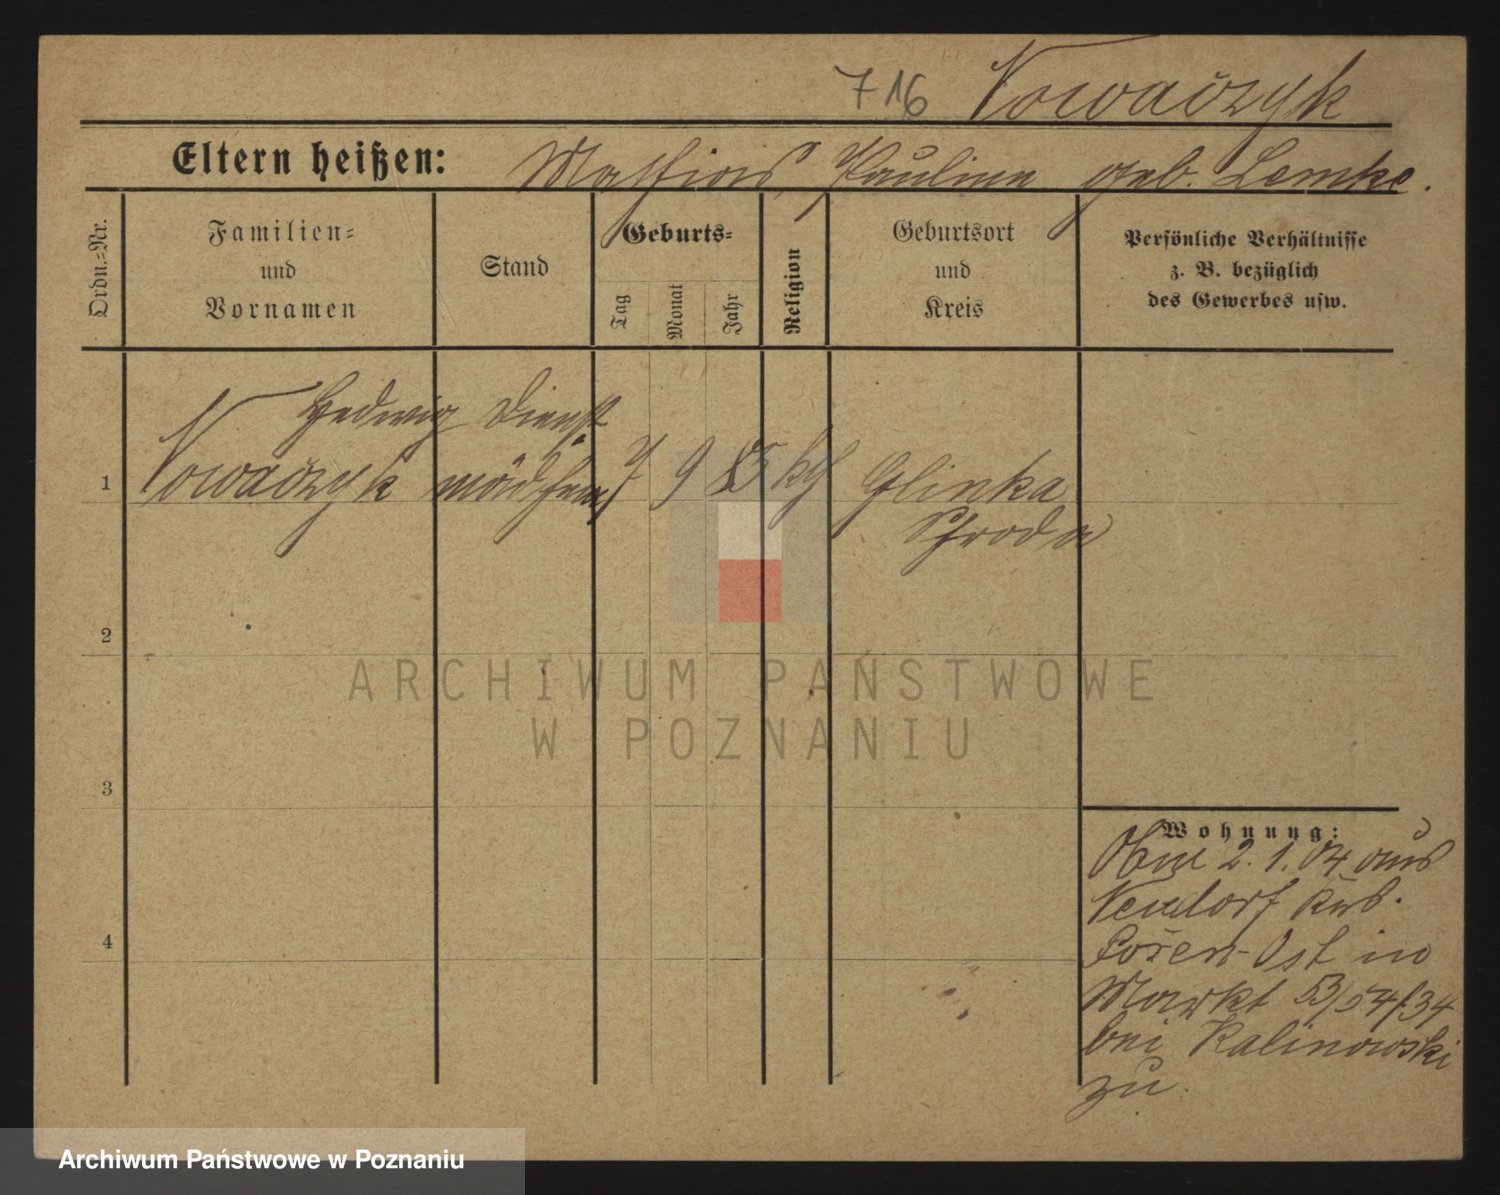 716 Nowaczyk
Eltern heißen: Mathias, Pauline geb. Lemke.
Ordn.-Nr.
Familien-
und
Vornamen
Stand
Geburts-
Tag
Monat
Jahr
Religion
Geburtsort
und
Kreis
Persönliche Verhältnisse
z. B. bezüglich
des Gewerbes usw.
Hedwig Dienst
1 Nowaczyk mädchen 7 9 85 kth Glinka
Schroda
2
3
4
Wohnung:
2. 1. 04 aus
Neudorf
Posen-Ost in
Markt 53/54/34
bei Kalinowski
zu.
ARCHIWUM PAŃSTWOWE
W POZNANIU
Archiwum Państwowe w Poznaniu